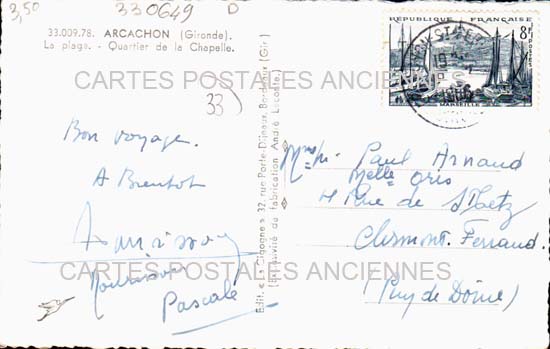 3,50
330649
D
33.009.78. ARCACHON (Gironde).
La plage. - Quartier de la Chapelle.
RÉPUBLIQUE FRANÇAISE
8F
POSTES
MARSEILLE
CARTES POSTALES ANCIENNES
33
Bon voyage.
A Bientot
Pascale
Edit. « La Cigogne » 32, rue Porte-Dijeaux, Bordeaux (Gir.)
(Exclusivité de fabrication André Leconte.)
Paul Arnaud
Melle
4 Rue de
Clermont-Ferrand.
(Puy de Dôme)
CARTES POSTALES ANCIENNES